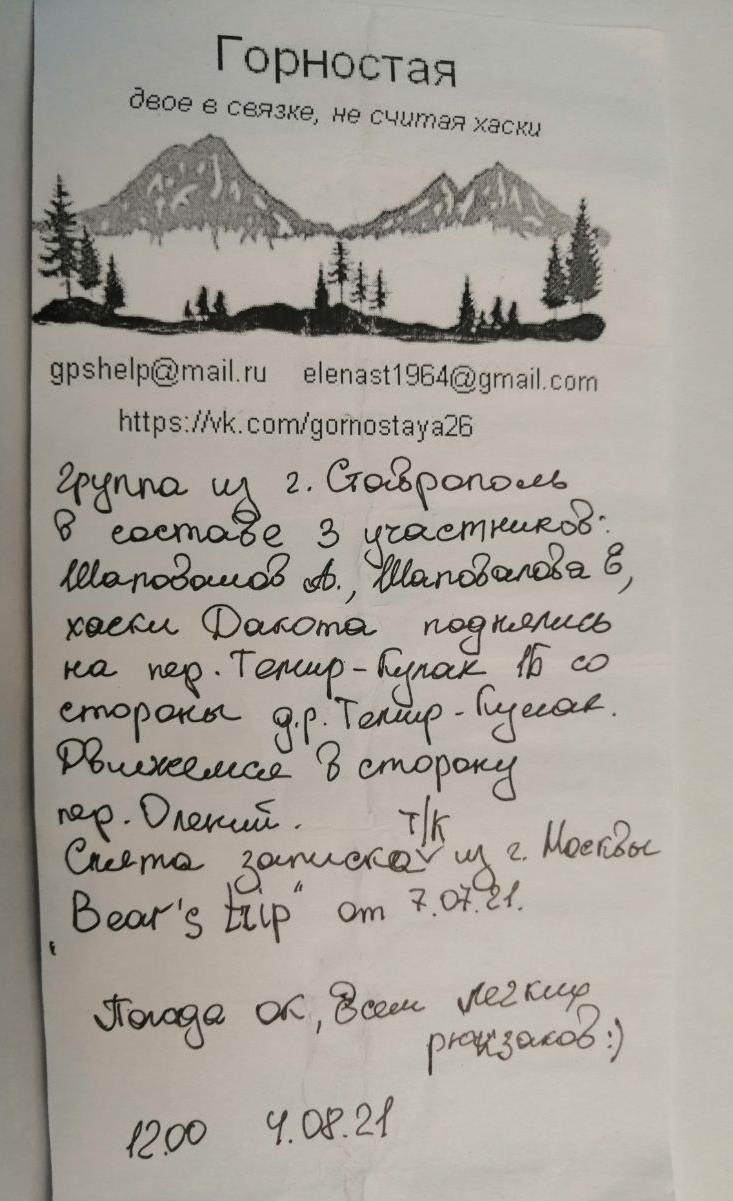 Горностая
двое в связке, не считая хаски
gpshelp@mail.ru elenast1964@gmail.com
https://vk.com/gornostaya26
Группа из г. Ставрополь
в составе 3 участников:
Шаповалов А., Шаповалова Е,
хаски Дакота поднялись
на пер. Темир-Кулак 1Б со
стороны д.р. Темир-Кулак.
Движемся в сторону
пер. Олений.
Снята записка т/к из г. Москвы
"Bear's trip" от 7.07.21.
Погода ок, Всем легких
рюкзаков :)
12.00 4.08.21